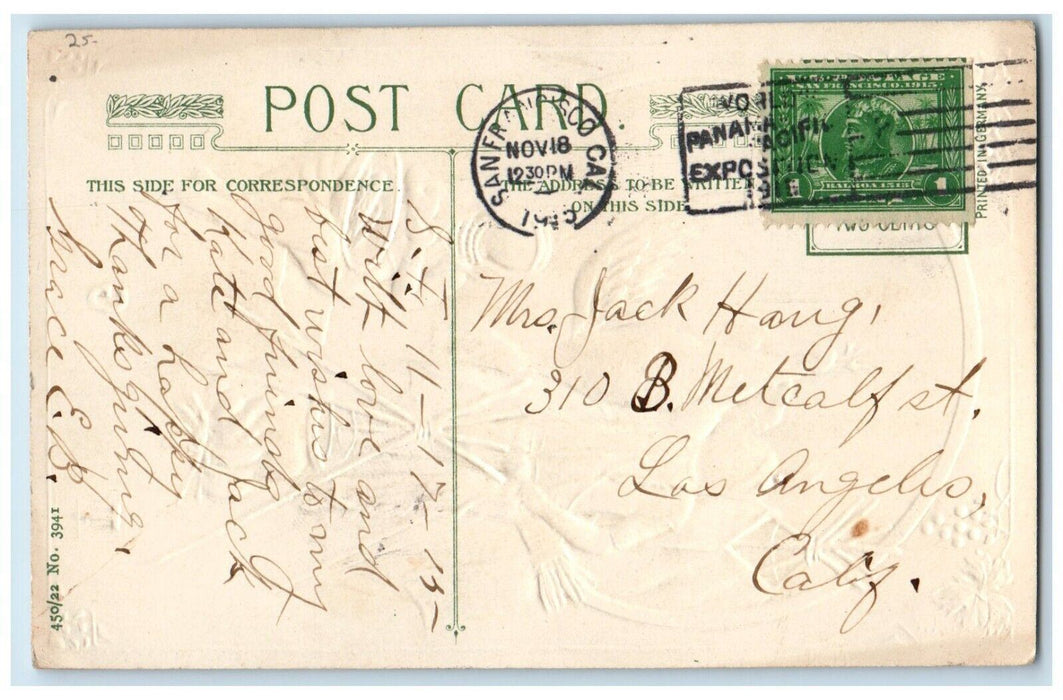 25-
POST CARD.
THIS SIDE FOR CORRESPONDENCE.
THE ADDRESS TO BE WRITTEN
ON THIS SIDE
SAN FRANCISCO CAL
NOV 18
12 30 PM
1915
WORLD
PANAMA PACIFIC
EXPOSITION
SAN FRANCISCO, 1915
BALBOA 1513
1 1
TWO CENTS
PRINTED IN GERMANY.
S.F. 11-17-15-
With love and
best wishes to my
good friends
Kate and Jack
for a happy
Thanksgiving.
Grace E.B.
Mrs. Jack Haug,
310 B. Metcalf st.
Los Angeles,
Calif.
450/22 No. 3941